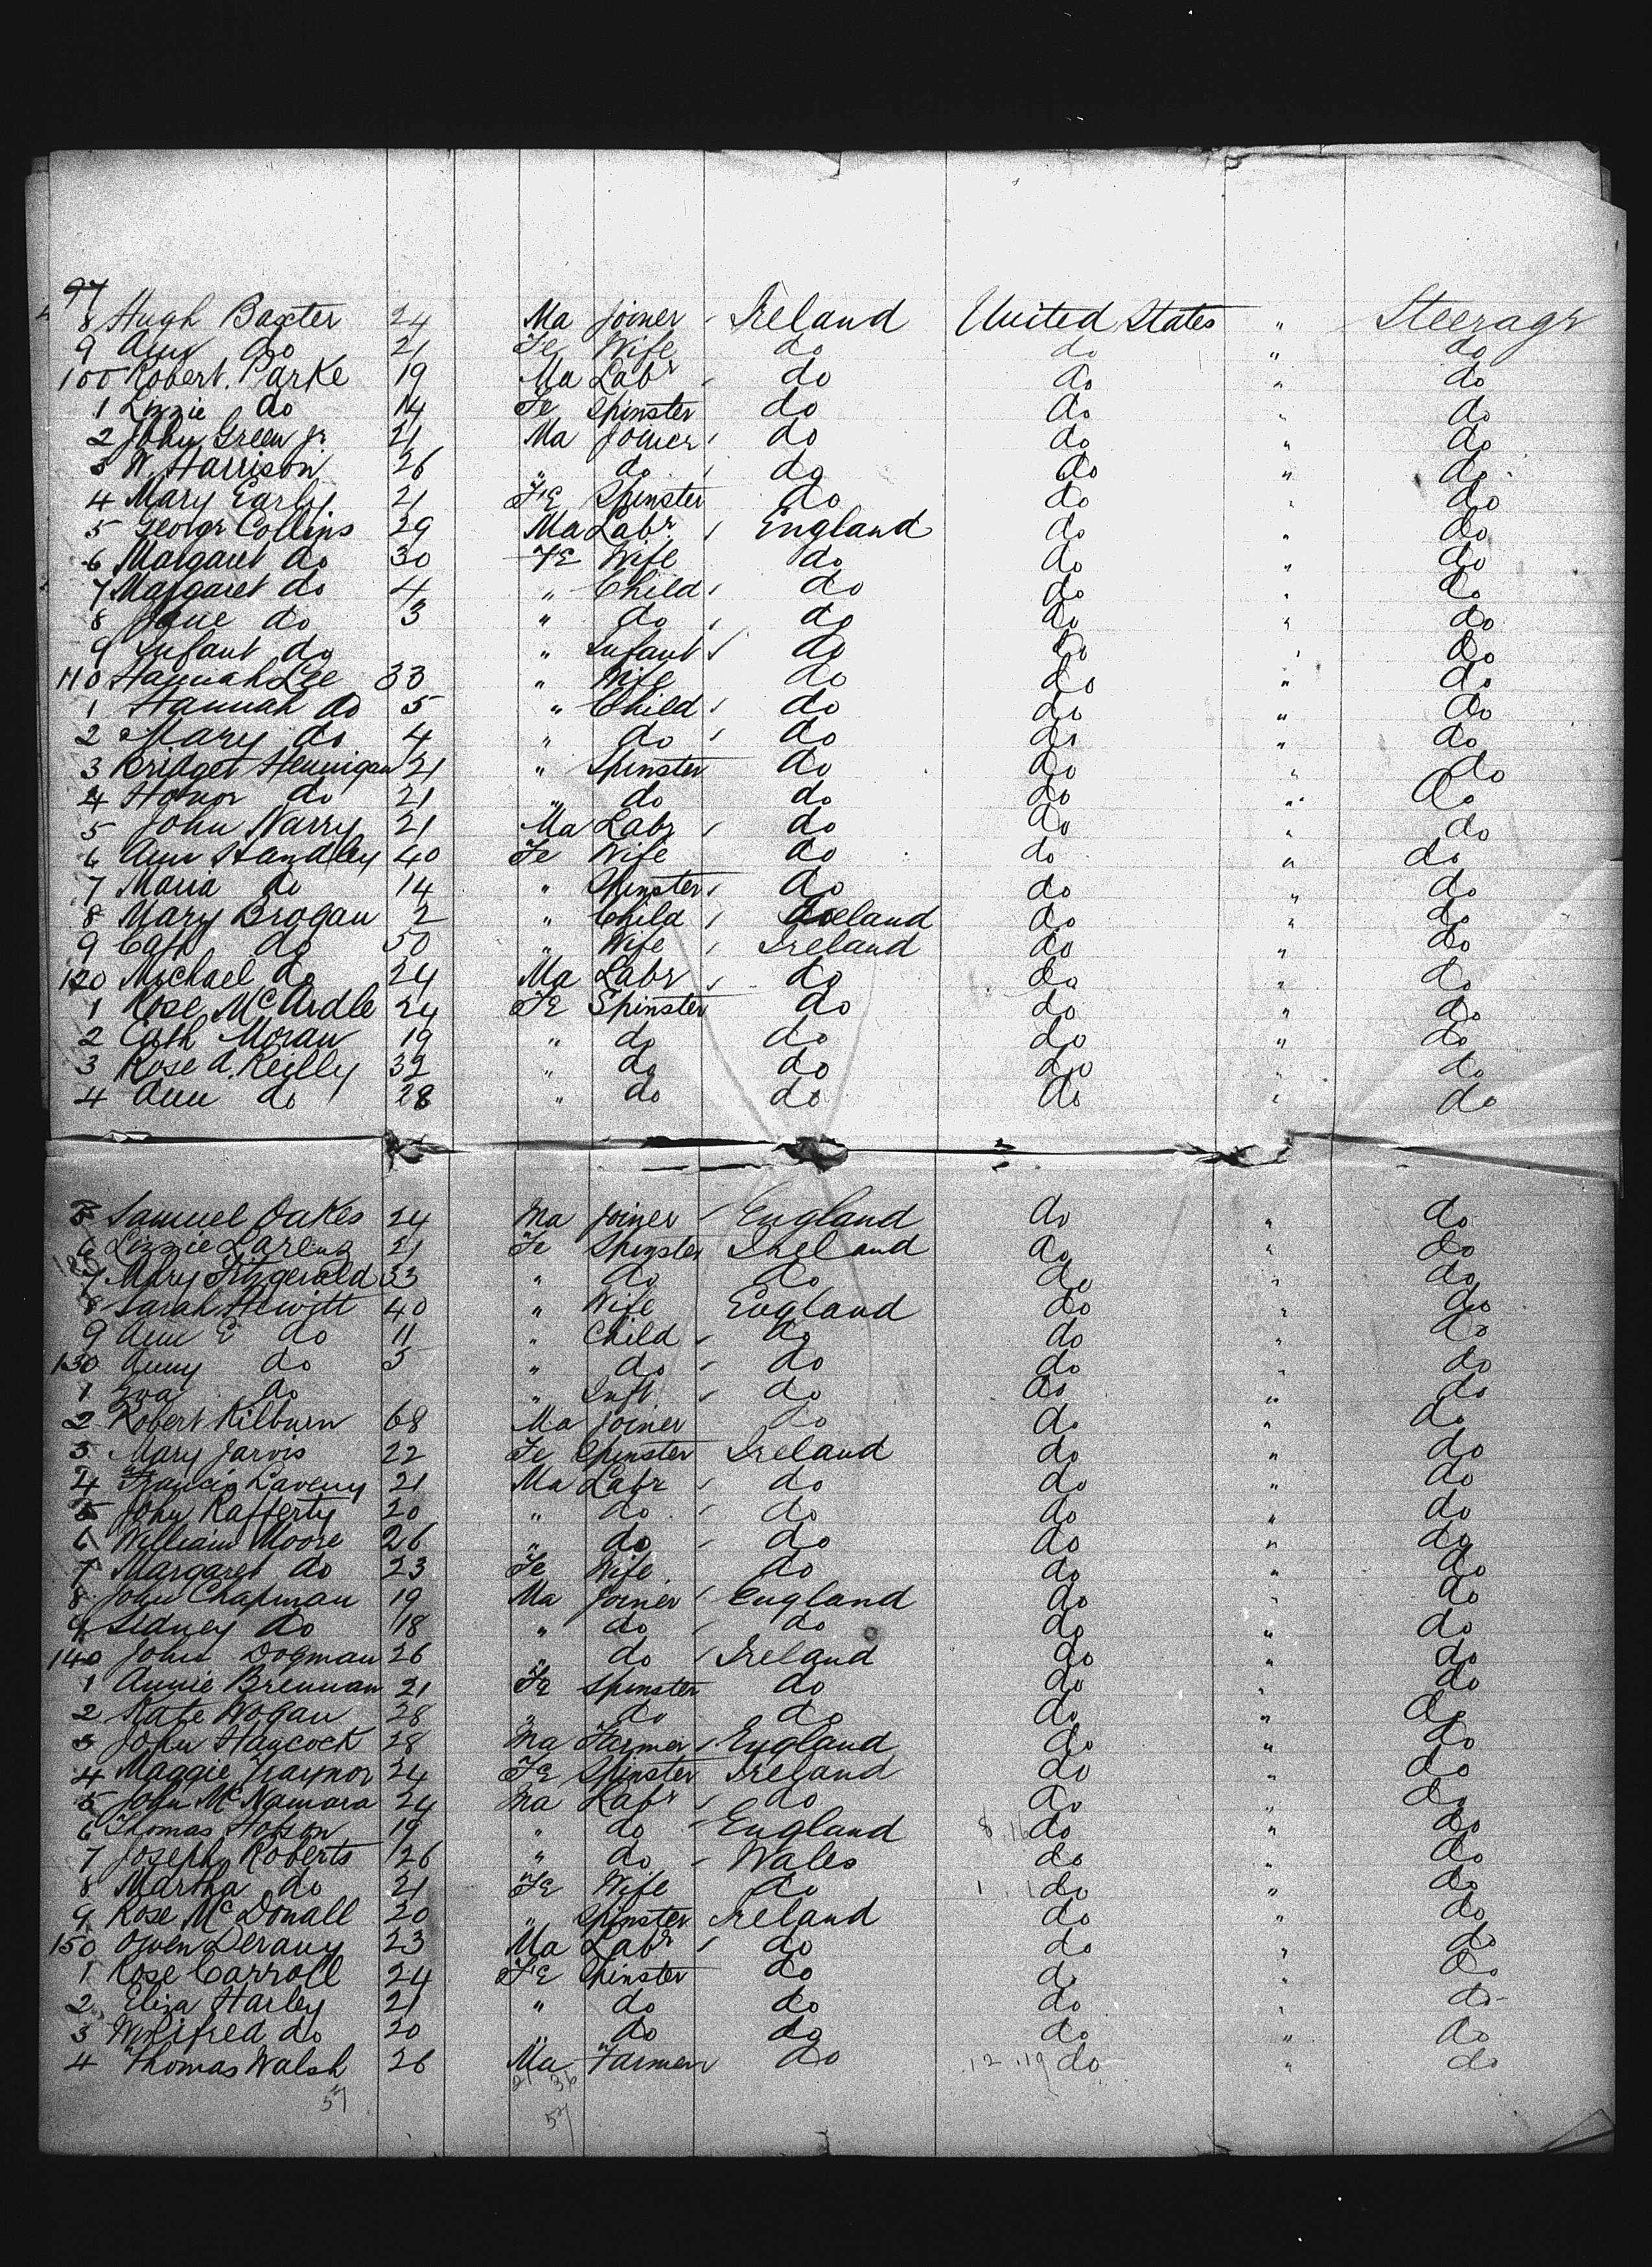 97
8 Hugh Baxter 24 Ma Joiner Ireland United States " Steerage
9 Ann do 21 Fe Wife do do " do
100 Robert Parke 19 Ma Labr do do " do
1 Lizzie do 14 Fe Spinster do do " do
2 John Green Jr 21 Ma Joiner do do " do
3 W. Harrison 26 " do do do " do
4 Mary Early 21 FE Spinster do do " do
5 George Collins 29 Ma Labr England do " do
6 Margaret do 30 FE Wife do do " do
7 Margaret do 4 " Child do do " do
8 Jane do 3 " do do do " do
9 Infant do " Infant do do " do
110 Hannah Lee 33 " Wife do do " do
1 Hannah do 5 " Child do do " do
2 Mary do 4 " do do do " do
3 Bridget Hennigan 21 " Spinster do do " do
4 Honor do 21 " do do do " do
5 John Narry 21 Ma Labr do do " do
6 Ann Standley 40 Fe Wife do do " do
7 Maria do 14 " Spinster do do " do
8 Mary Brogan 2 " Child Ireland do " do
9 Cath do 50 " Wife Ireland do " do
120 Michael do 24 Ma Labr do do " do
1 Rose McArdle 24 FE Spinster do do " do
2 Cath Moran 19 " do do do " do
3 Rose A. Reilly 32 " do do do " do
4 Ann do 28 " do do do " do
5 Samuel Oakes 24 Ma Joiner England do " do
6 Lizzie Larenz 21 Fe Spinster Ireland do " do
7 Mary Fitzgerald 33 " do do do " do
8 Sarah Hewitt 40 " Wife England do " do
9 Ann E do 11 " Child do do " do
130 Anny do 5 " do do do " do
1 Eva do " Inft do do " do
2 Robert Kilburn 68 Ma Joiner do do " do
3 Mary Jarvis 22 Fe Spinster Ireland do " do
4 Francis Laveny 21 Ma Labr do do " do
5 John Rafferty 20 " do do do " do
6 William Moore 26 " do do do " do
7 Margaret do 23 Fe Wife do do " do
8 John Chapman 19 Ma Joiner England do " do
9 Sidney do 18 " do do do " do
140 John Dogman 26 " do Ireland do " do
1 Annie Brennan 21 Fe Spinster do do " do
2 Kate Wogan 28 " do do do " do
3 John Hancock 28 Ma Farmer England do " do
4 Maggie Traynor 24 FE Spinster Ireland do " do
5 John McNamara 24 Ma Labr do do " do
6 Thomas Hobson 19 " do England do " do
7 Joseph Roberts 26 " do Wales do " do
8 Martha do 21 FE Wife do do " do
9 Rose McDonall 20 " Spinster Ireland do " do
150 Owen Derany 23 Ma Labr do do " do
1 Rose Carroll 24 FE Spinster do do " do
2 Eliza Harley 21 " do do do " do
3 Winifred do 20 " do do do " do
4 Thomas Walsh 26 Ma Farmer do 12 . 19 do " do
57 21 36
57